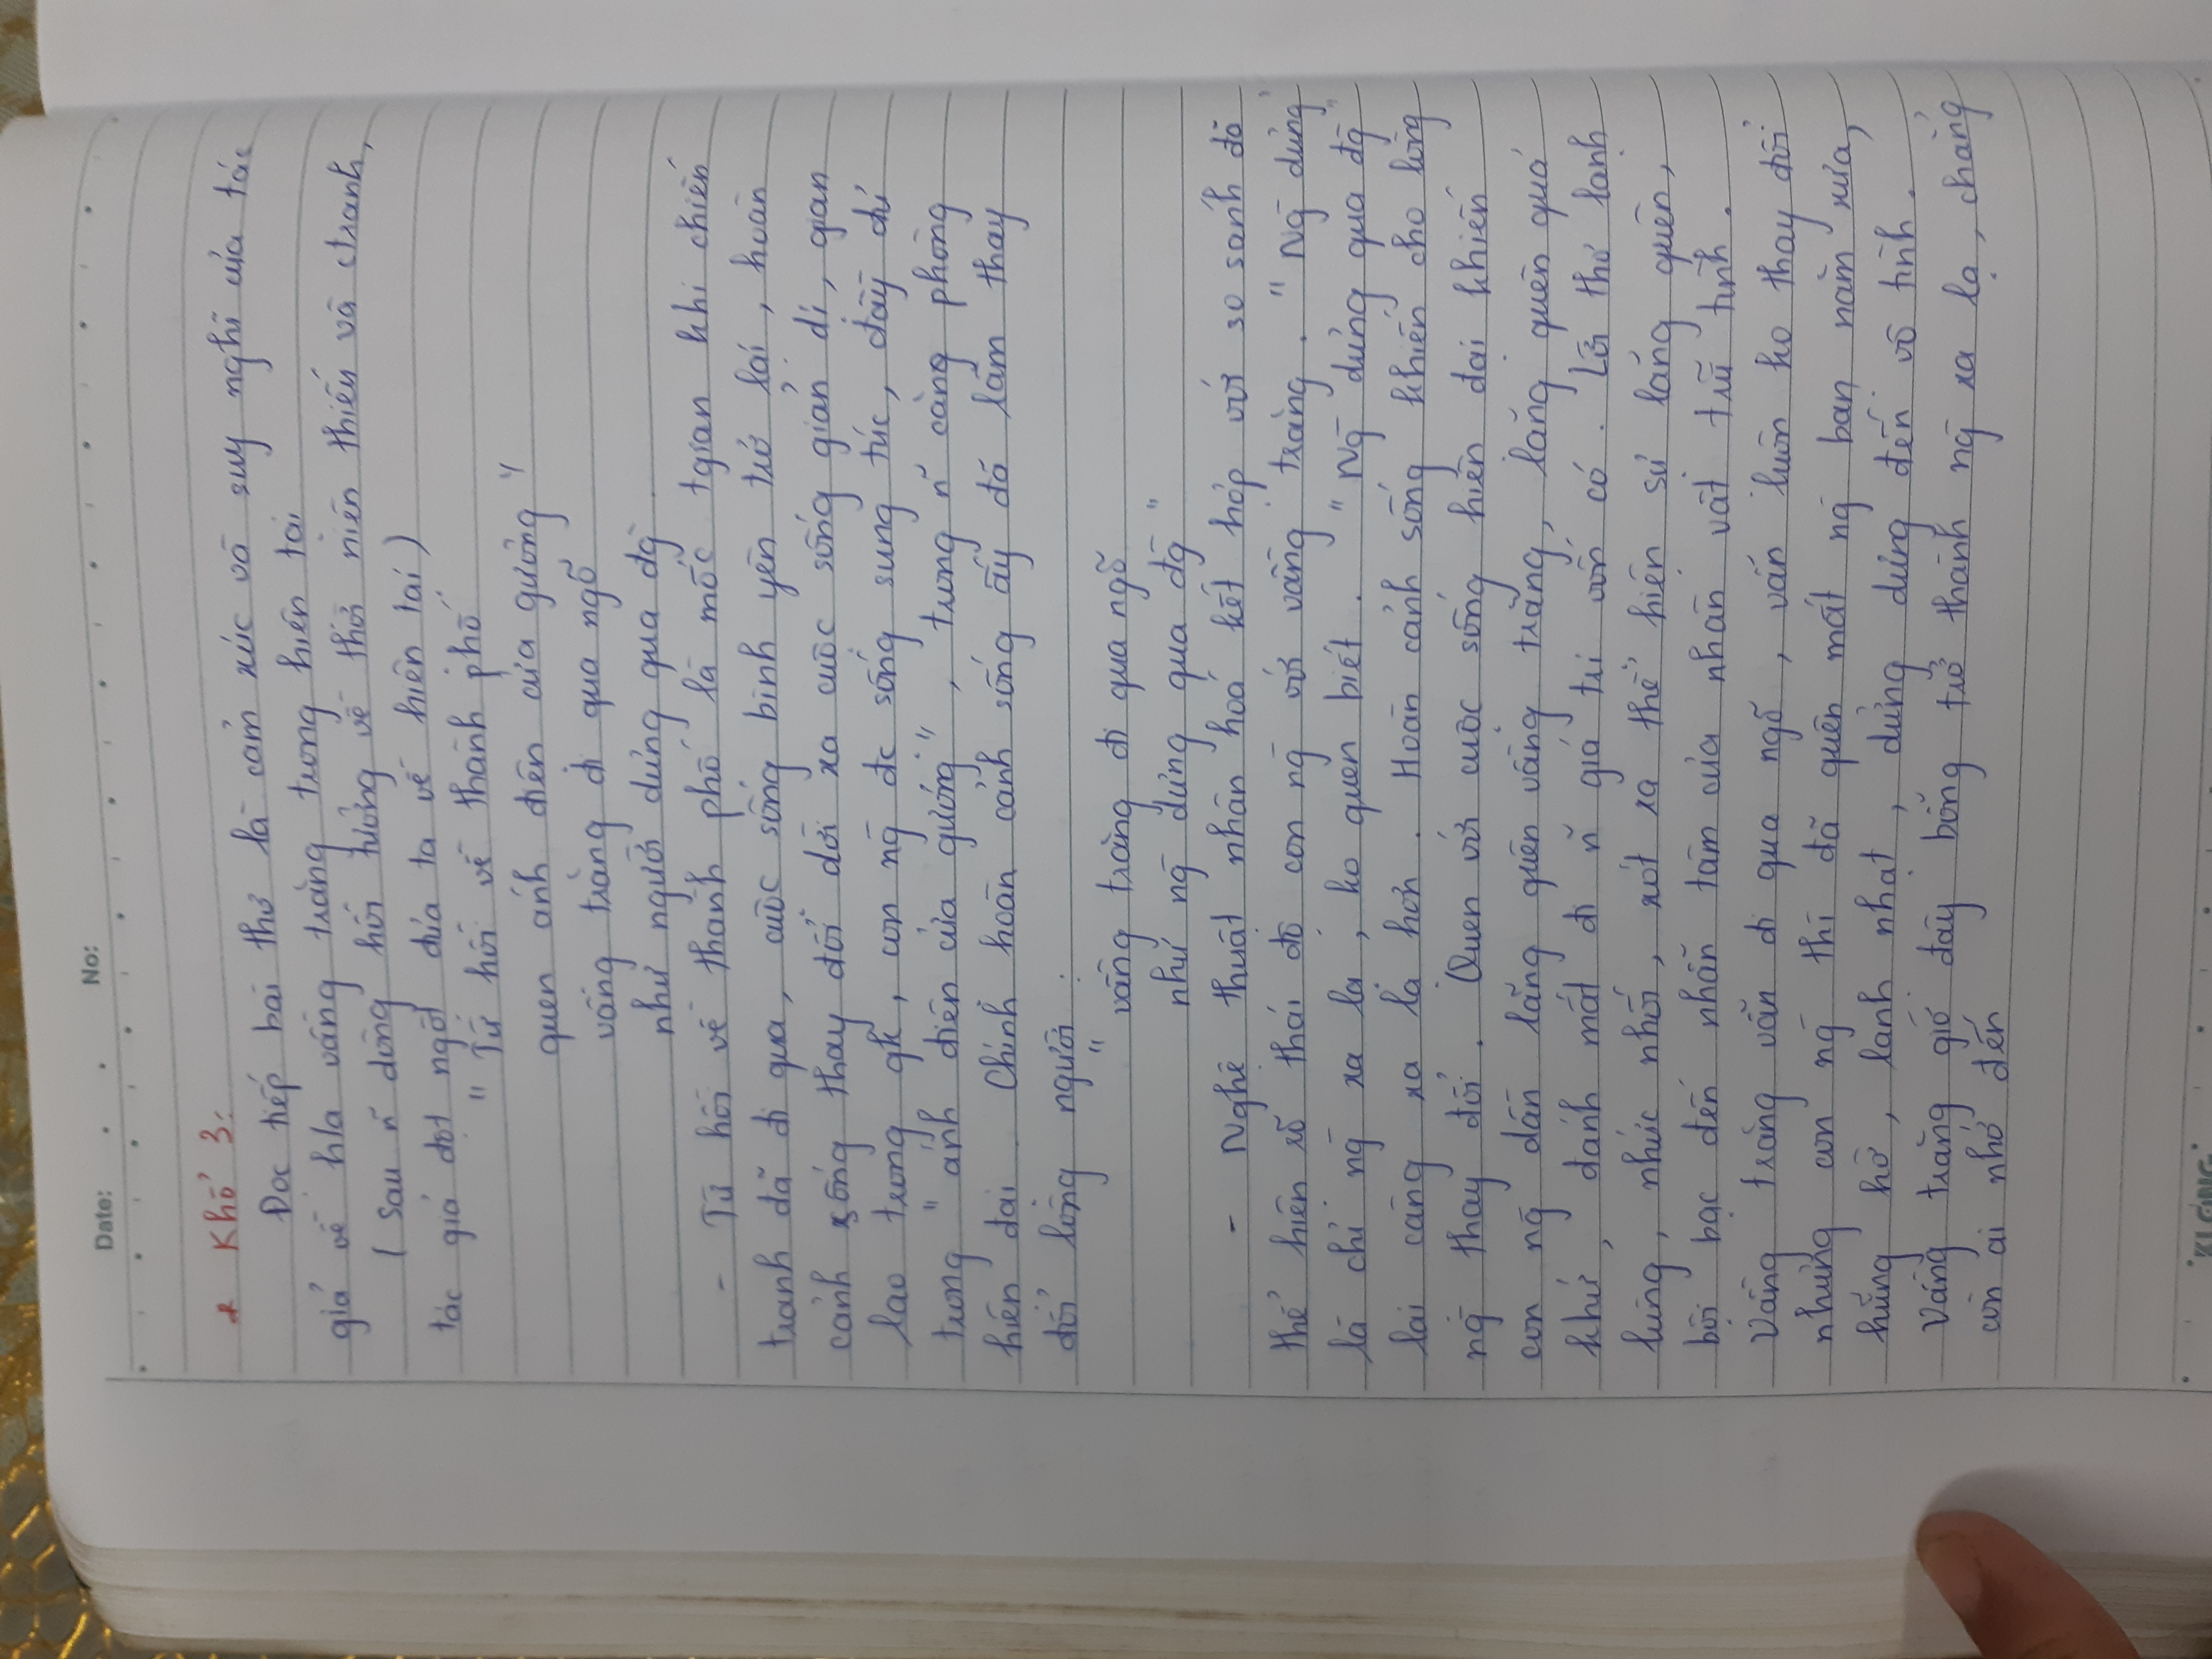 Date: . . No:
* Khổ 3:
Đọc tiếp bài thơ là cảm xúc và suy nghĩ của tác
giả về h/a vầng trăng trong hiện tại
( sau n~ dòng hồi tưởng về thời niên thiếu và ctranh,
tác giả đột ngột đưa ta về hiện tại )
" Từ hồi về thành phố
quen ánh điện cửa gương "
vầng trăng đi qua ngõ
như người dưng qua đg
- Từ hồi về thành phố là mốc tgian khi chiến
tranh đã đi qua, cuộc sống bình yên trở lại, hoàn
cảnh sống thay đổi dời xa cuộc sống giản dị, gian
lao trong qk, con ng đc sống sung túc, đầy đủ
trong " ánh điện cửa gương ", trong n~ căng phòng
hiện đại. Chính hoàn cảnh sống ấy đã làm thay
đổi lòng người :
" vầng trăng đi qua ngõ
như ng dưng qua đg "
- Nghệ thuật nhân hoá kết hợp với so sánh đã
thể hiện rõ thái độ con ng với vầng trăng. " Ng dưng "
là chỉ ng xa lạ, ko quen biết. " Ng dưng qua đg "
lại càng xa lạ hơn. Hoàn cảnh sống khiến cho lòng
ng thay đổi. Quen với cuộc sống hiện đại khiến
con ng dần lãng quên vầng trăng, lãng quên quá
khứ, đánh mất đi n~ giá trị vốn có. Lời thơ lạnh
lùng, nhức nhối, xót xa thể hiện sự lãng quên,
bội bạc đến nhẫn tâm của nhân vật trữ tình.
Vầng trăng vẫn đi qua ngõ, vẫn luôn ko thay đổi
nhưng con ng thì đã quên mất ng bạn năm xưa,
hững hờ, lạnh nhạt, dửng dưng đến vô tình.
Vầng trăng giờ đây bỗng trở thành ng xa lạ, chẳng
còn ai nhớ đến
KLONG